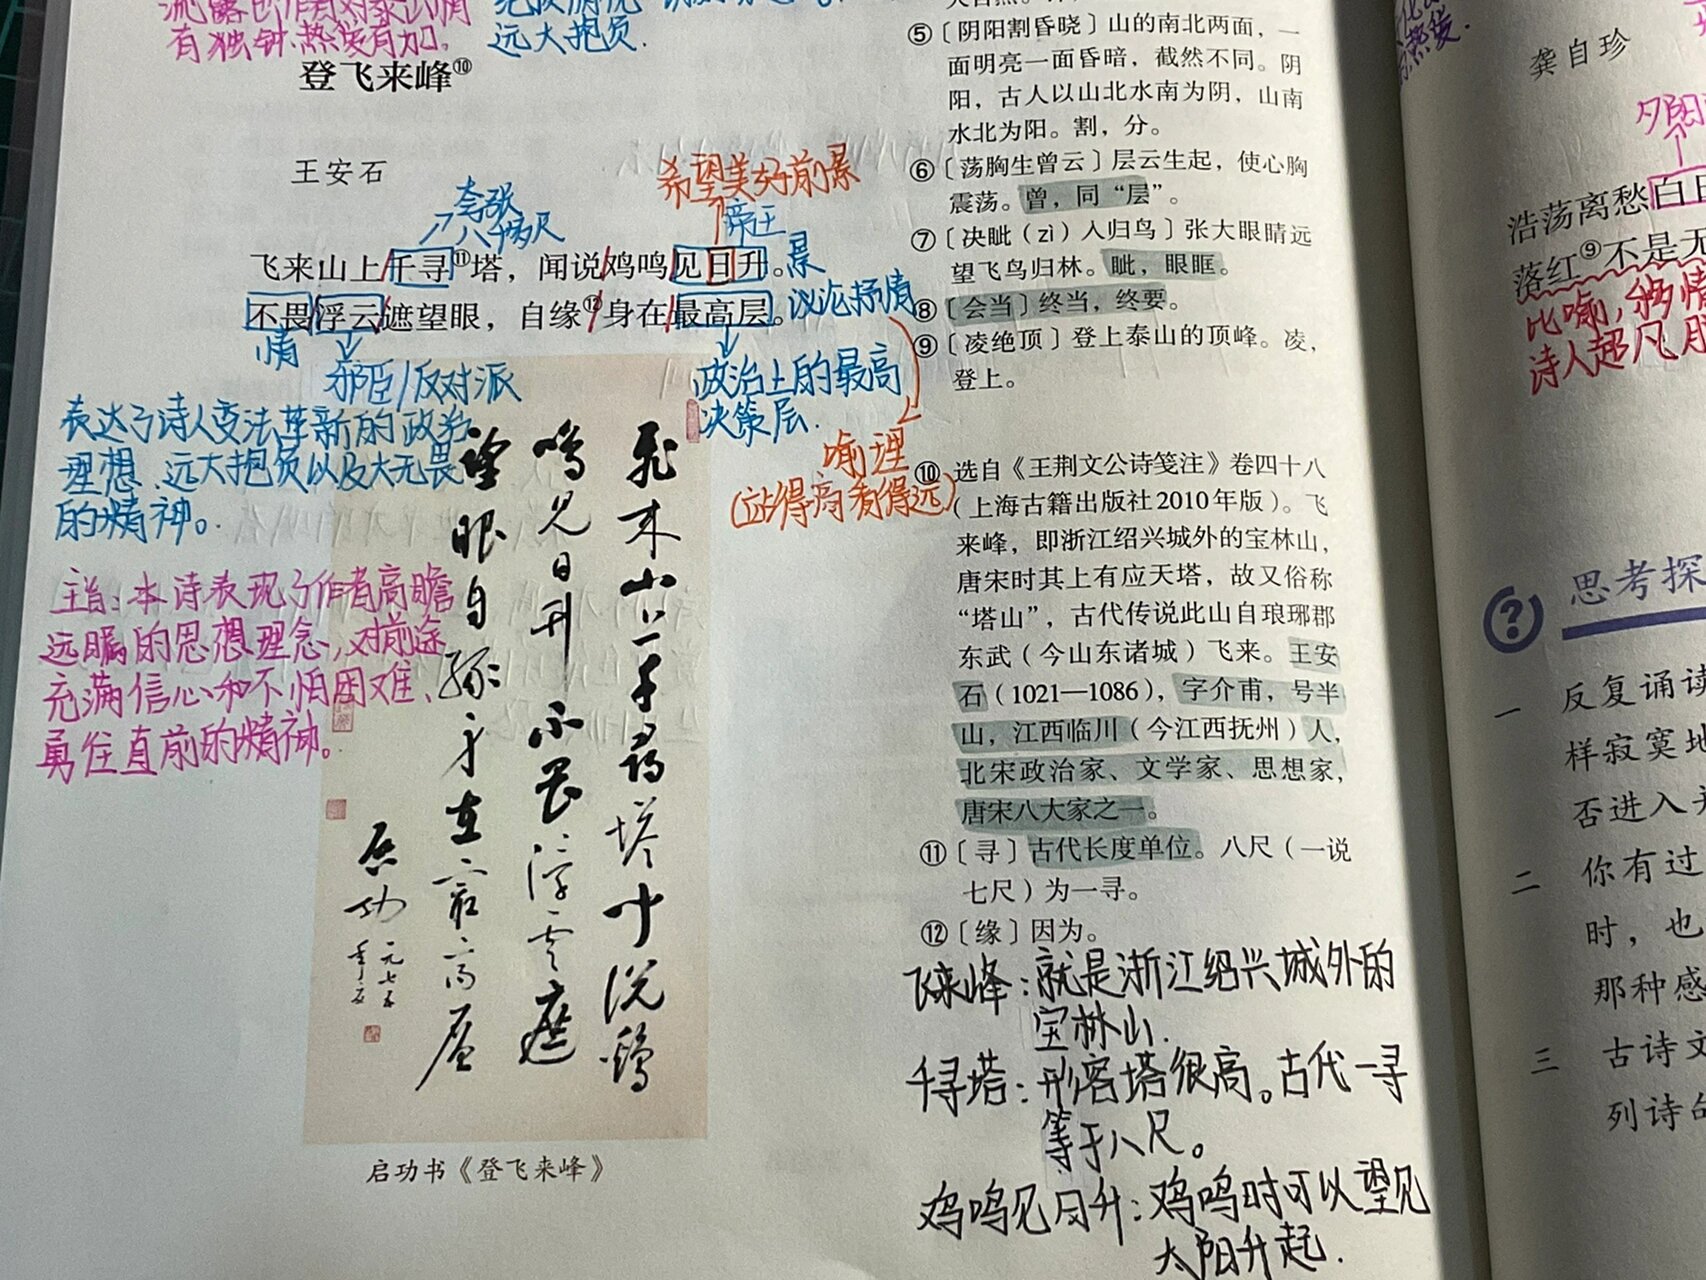 有独钟.热爱有加.
远大抱负.
登飞来峰⑩
王安石
夸张
八千多尺
希望美好前景
帝王
飞来山上千寻⑪塔，闻说鸡鸣见日升。景
不畏浮云遮望眼，自缘⑫身在最高层。议论抒情
情
邪臣/反对派
政治上的最高
决策层.
喻理
(站得高看得远)
表达了诗人变法革新的政治
理想.远大抱负以及大无畏
的精神。
主旨:本诗表现了作者高瞻
远瞩的思想理念,对前途
充满信心和不怕困难、
勇往直前的精神。
飞来山上千寻塔闻说鸡
鸣见日升不畏浮云遮
望眼自缘身在最高层
启功
启功书《登飞来峰》
⑤〔阴阳割昏晓〕山的南北两面，一
面明亮一面昏暗，截然不同。阴
阳，古人以山北水南为阴，山南
水北为阳。割，分。
⑥〔荡胸生曾云〕层云生起，使心胸
震荡。曾，同“层”。
⑦〔决眦（zì）入归鸟〕张大眼睛远
望飞鸟归林。眦，眼眶。
⑧〔会当〕终当，终要。
⑨〔凌绝顶〕登上泰山的顶峰。凌，
登上。
⑩ 选自《王荆文公诗笺注》卷四十八
（上海古籍出版社2010年版）。飞
来峰，即浙江绍兴城外的宝林山，
唐宋时其上有应天塔，故又俗称
“塔山”，古代传说此山自琅琊郡
东武（今山东诸城）飞来。王安
石（1021—1086），字介甫，号半
山，江西临川（今江西抚州）人，
北宋政治家、文学家、思想家，
唐宋八大家之一。
⑪〔寻〕古代长度单位。八尺（一说
七尺）为一寻。
⑫〔缘〕因为。
飞来峰:就是浙江绍兴城外的
宝林山.
千寻塔:形容塔很高。古代一寻
等于八尺。
鸡鸣见日升:鸡鸣时可以望见
太阳升起.
龚自珍
夕阳
浩荡离愁白日
落红⑨不是无
比喻,
诗人超凡
思考探
一 反复诵读
样寂寞地
否进入
二 你有过
时，也
那种感
三 古诗文
列诗句